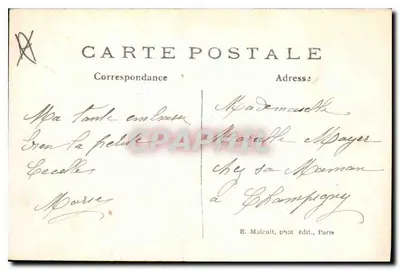 CARTE POSTALE
Correspondance
Adresse
Ma tante embrasse
bien la petite
Cecelle
Marie
Mademoiselle
Marcelle Mayer
chez sa Maman
à Champigny
E. Malcuit, phot édit., Paris